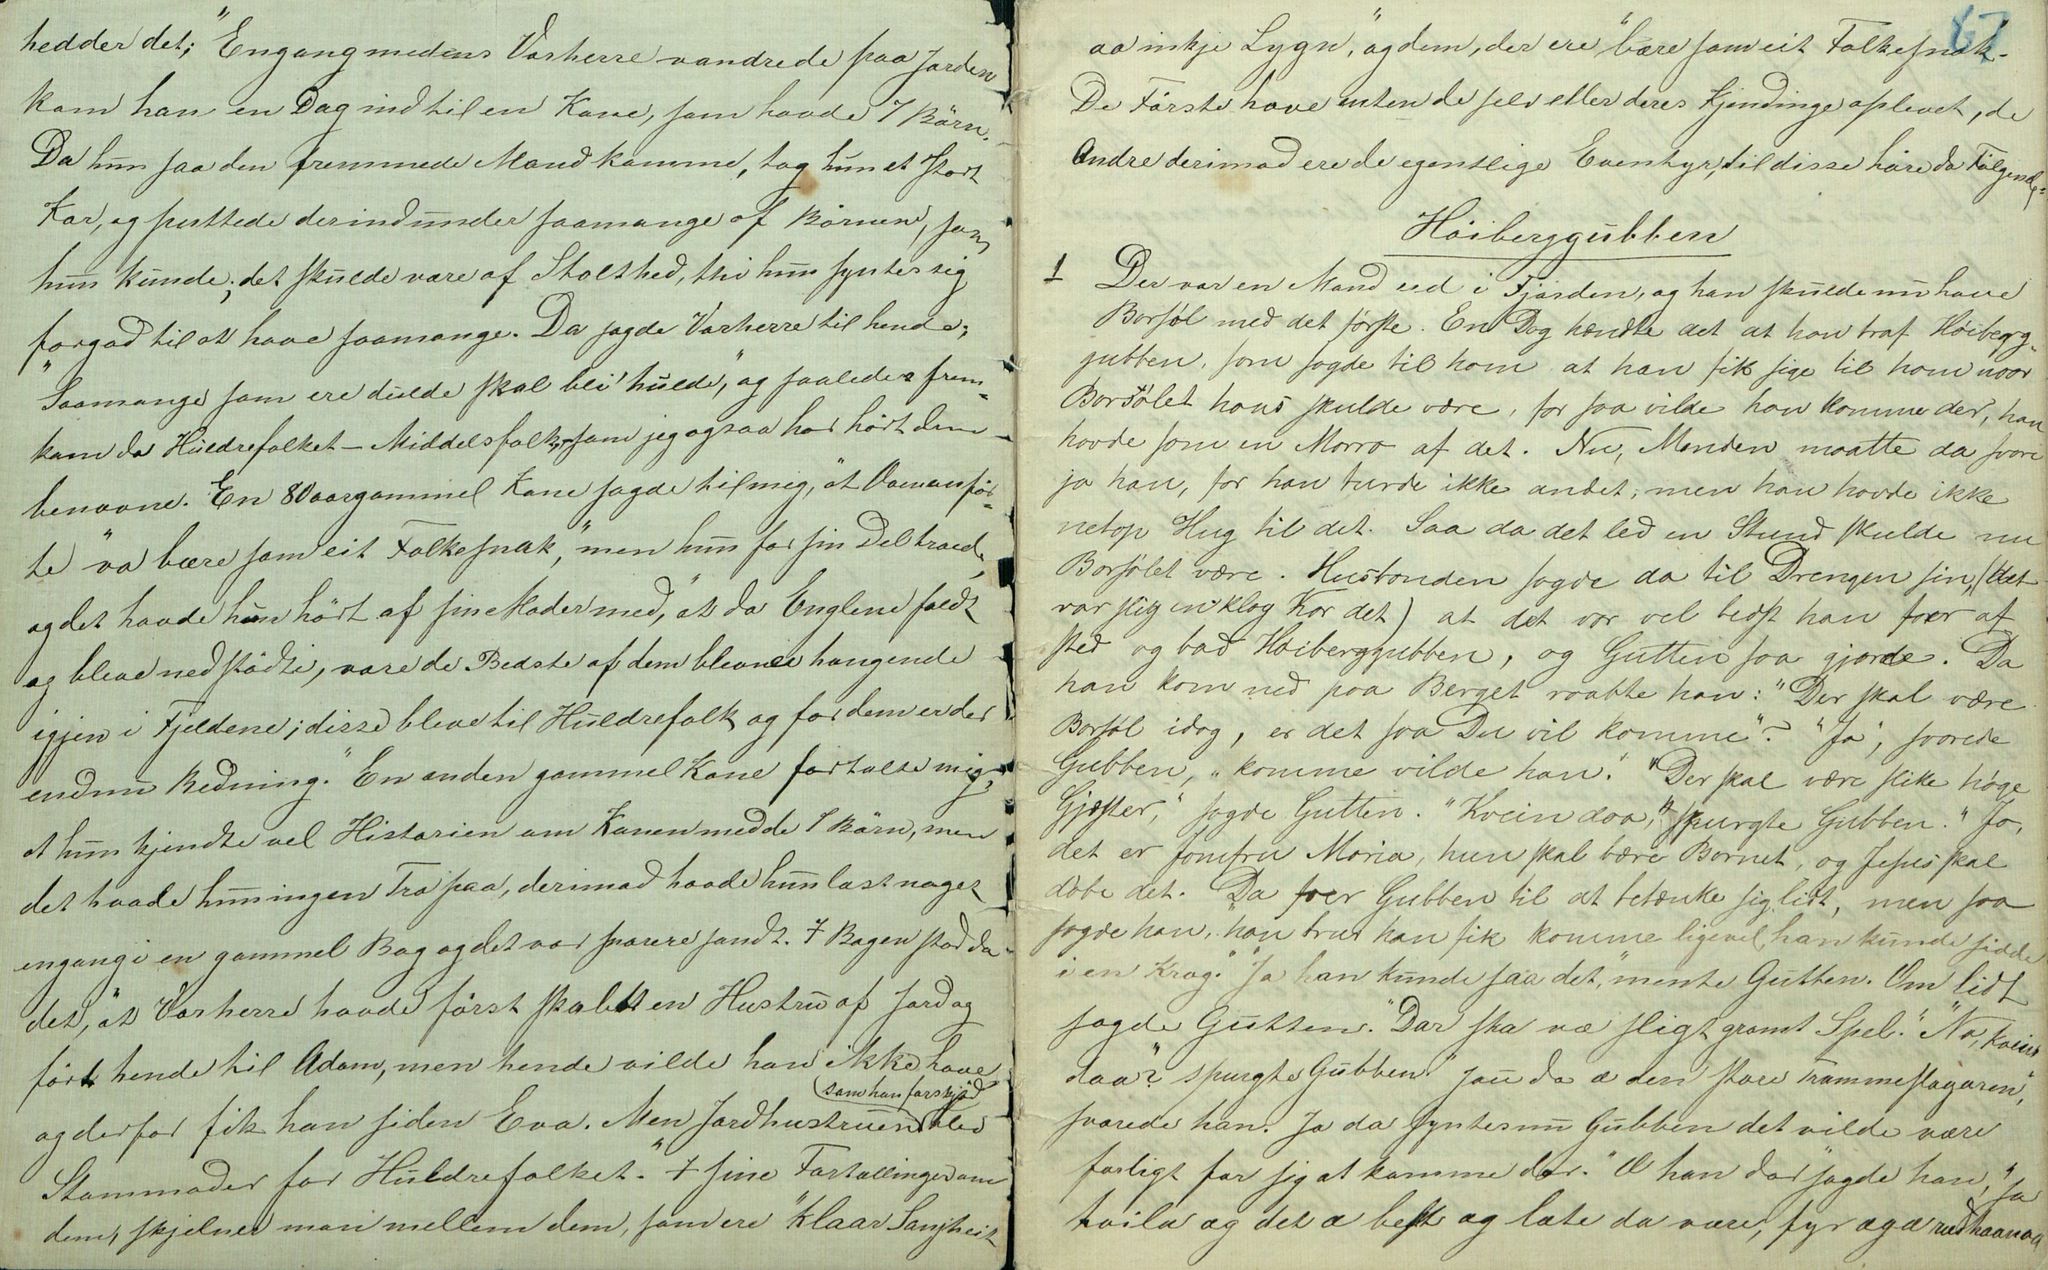 hedder det; "Engang medens Vorherre vandrede paa Jorden
kom han en Dag ind til en Kone, som havde 7 Börn.
Da hun saa den fremmede Mand komme, tog hun et stort
Kar, og puttede derind under saamange af Börnene, som
hun kunde; det skulde være af Stolthed, thi hun syntes sig
forgod til at have saamange. Da sagde Vorherre til hende;
"Saamange som ere dulde skal bli' hulde", og saaledes frem-
kom da Huldrefolket – Middelsfolk, som jeg ogsaa har hört dem
benævne. En 80aargammel Kone sagde til mig, "at Domanför-
te "va bære som eit Folkesnak," men hun for sin Del troede,
og det havde hun hört af sine Moder med, "at da Englene faldt
og bleve nedstödte, vare de Bedste af dem blevne hangende
igjen i Fjeldene; disse bleve til Huldrefolk og for dem er der
endnu Redning." En anden gammel Kone fortalte mig,
at hun kjendte vel Historien om Konen med de 7 Börn, men
det havde hun ingen Tro paa, derimod havde hun læst noget
engang i en gammel Bog og det var snarere sandt. I Bogen stod da
det, "at Vorherre havde först skabt en Hustru af Jord og
fört hende til Adam, men hende vilde han ikke have
og derfor fik han siden Eva. Men Jordhustruen (som han forskjöd) blev
Stammoder for Huldrefolket." I sine Fortællinger om
dem, skjelner man mellem dem, som ere "klaar Sanjheit
67
aa inkje Lygn," og dem, der ere "bære som eit Folkesnak".
De Förste have enten de selv eller deres Kjendinge oplevet, de
Andre derimod ere de egentlige Eventyr, til disse höre da Fölgende:
Höiberggubben
1 Der var en Mand ved i Fjorden, og han skulde nu have
Barsöl med det förste. En Dag hændte det at han traf Höiberg-
gubben, som sagde til ham at han fik sige til ham naar
Barsölet hans skulde være, for saa vilde han komme der, han
havde som en Morro af det. Nu, Manden maatte da svare
ja han, for han turde ikke andet, men han havde ikke
netop Hug til det. Saa da det led en Stund skulde nu
Barsölet være. Husbonden sagde da til Drengen sin, (det
var slig en klog Kor det) at det var vel bedst han foer af
sted og bad Höiberggubben, og Gutten saa gjorde. Da
han kom ned paa Berget raabte han: "Der skal være
Barsöl idag, er det saa Du vil komme"? "Ja", svarede
Gubben, "komme vilde han." "Der skal være slike höge
Gjæster," sagde Gutten. "Kvein daa," spurgte Gubben. "Jo,
det er Jomfru Maria, hun skal bære Barnet, og Jesus skal
döbe det. Da foer Gubben til at betænke sig lidt, men saa
sagde han, "han trur han fik komme ligevel, han kunde sidde
i en Krog." "Ja han kunde saa det," mente Gutten. Om lidt
sagde Gutten: "Dar ska væ sligt gramt Spel." "No, kvein
daa"? spurgte Gubben. "Jau da æ den store Trommeslagaren",
svarede han. Ja da syntes nu Gubben det vilde være
farligt for sig at komme der. "Æ han dar" sagde han, "ja
tvila eg det æ best eg læte da være, fyr eg æ